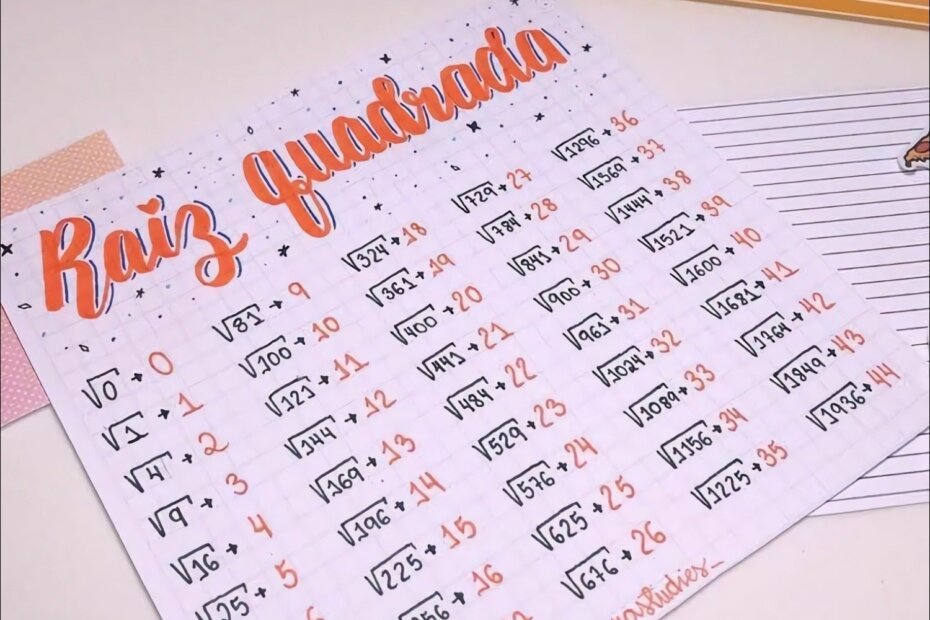 Raiz quadrada
√0 → 0
√1 → 1
√4 → 2
√9 → 3
√16 → 4
√25 → 5
√81 → 9
√100 → 10
√121 → 11
√144 → 12
√169 → 13
√196 → 14
√225 → 15
→ 16
√324 → 18
√361 → 19
√400 → 20
√441 → 21
√484 → 22
√529 → 23
√576 → 24
√625 → 25
√676 → 26
√729 → 27
√784 → 28
√841 → 29
√900 → 30
√961 → 31
√1024 → 32
√1089 → 33
√1156 → 34
√1225 → 35
√1296 → 36
√1569 → 37
√1444 → 38
√1521 → 39
√1600 → 40
√1681 → 41
√1764 → 42
√1849 → 43
√1936 → 44